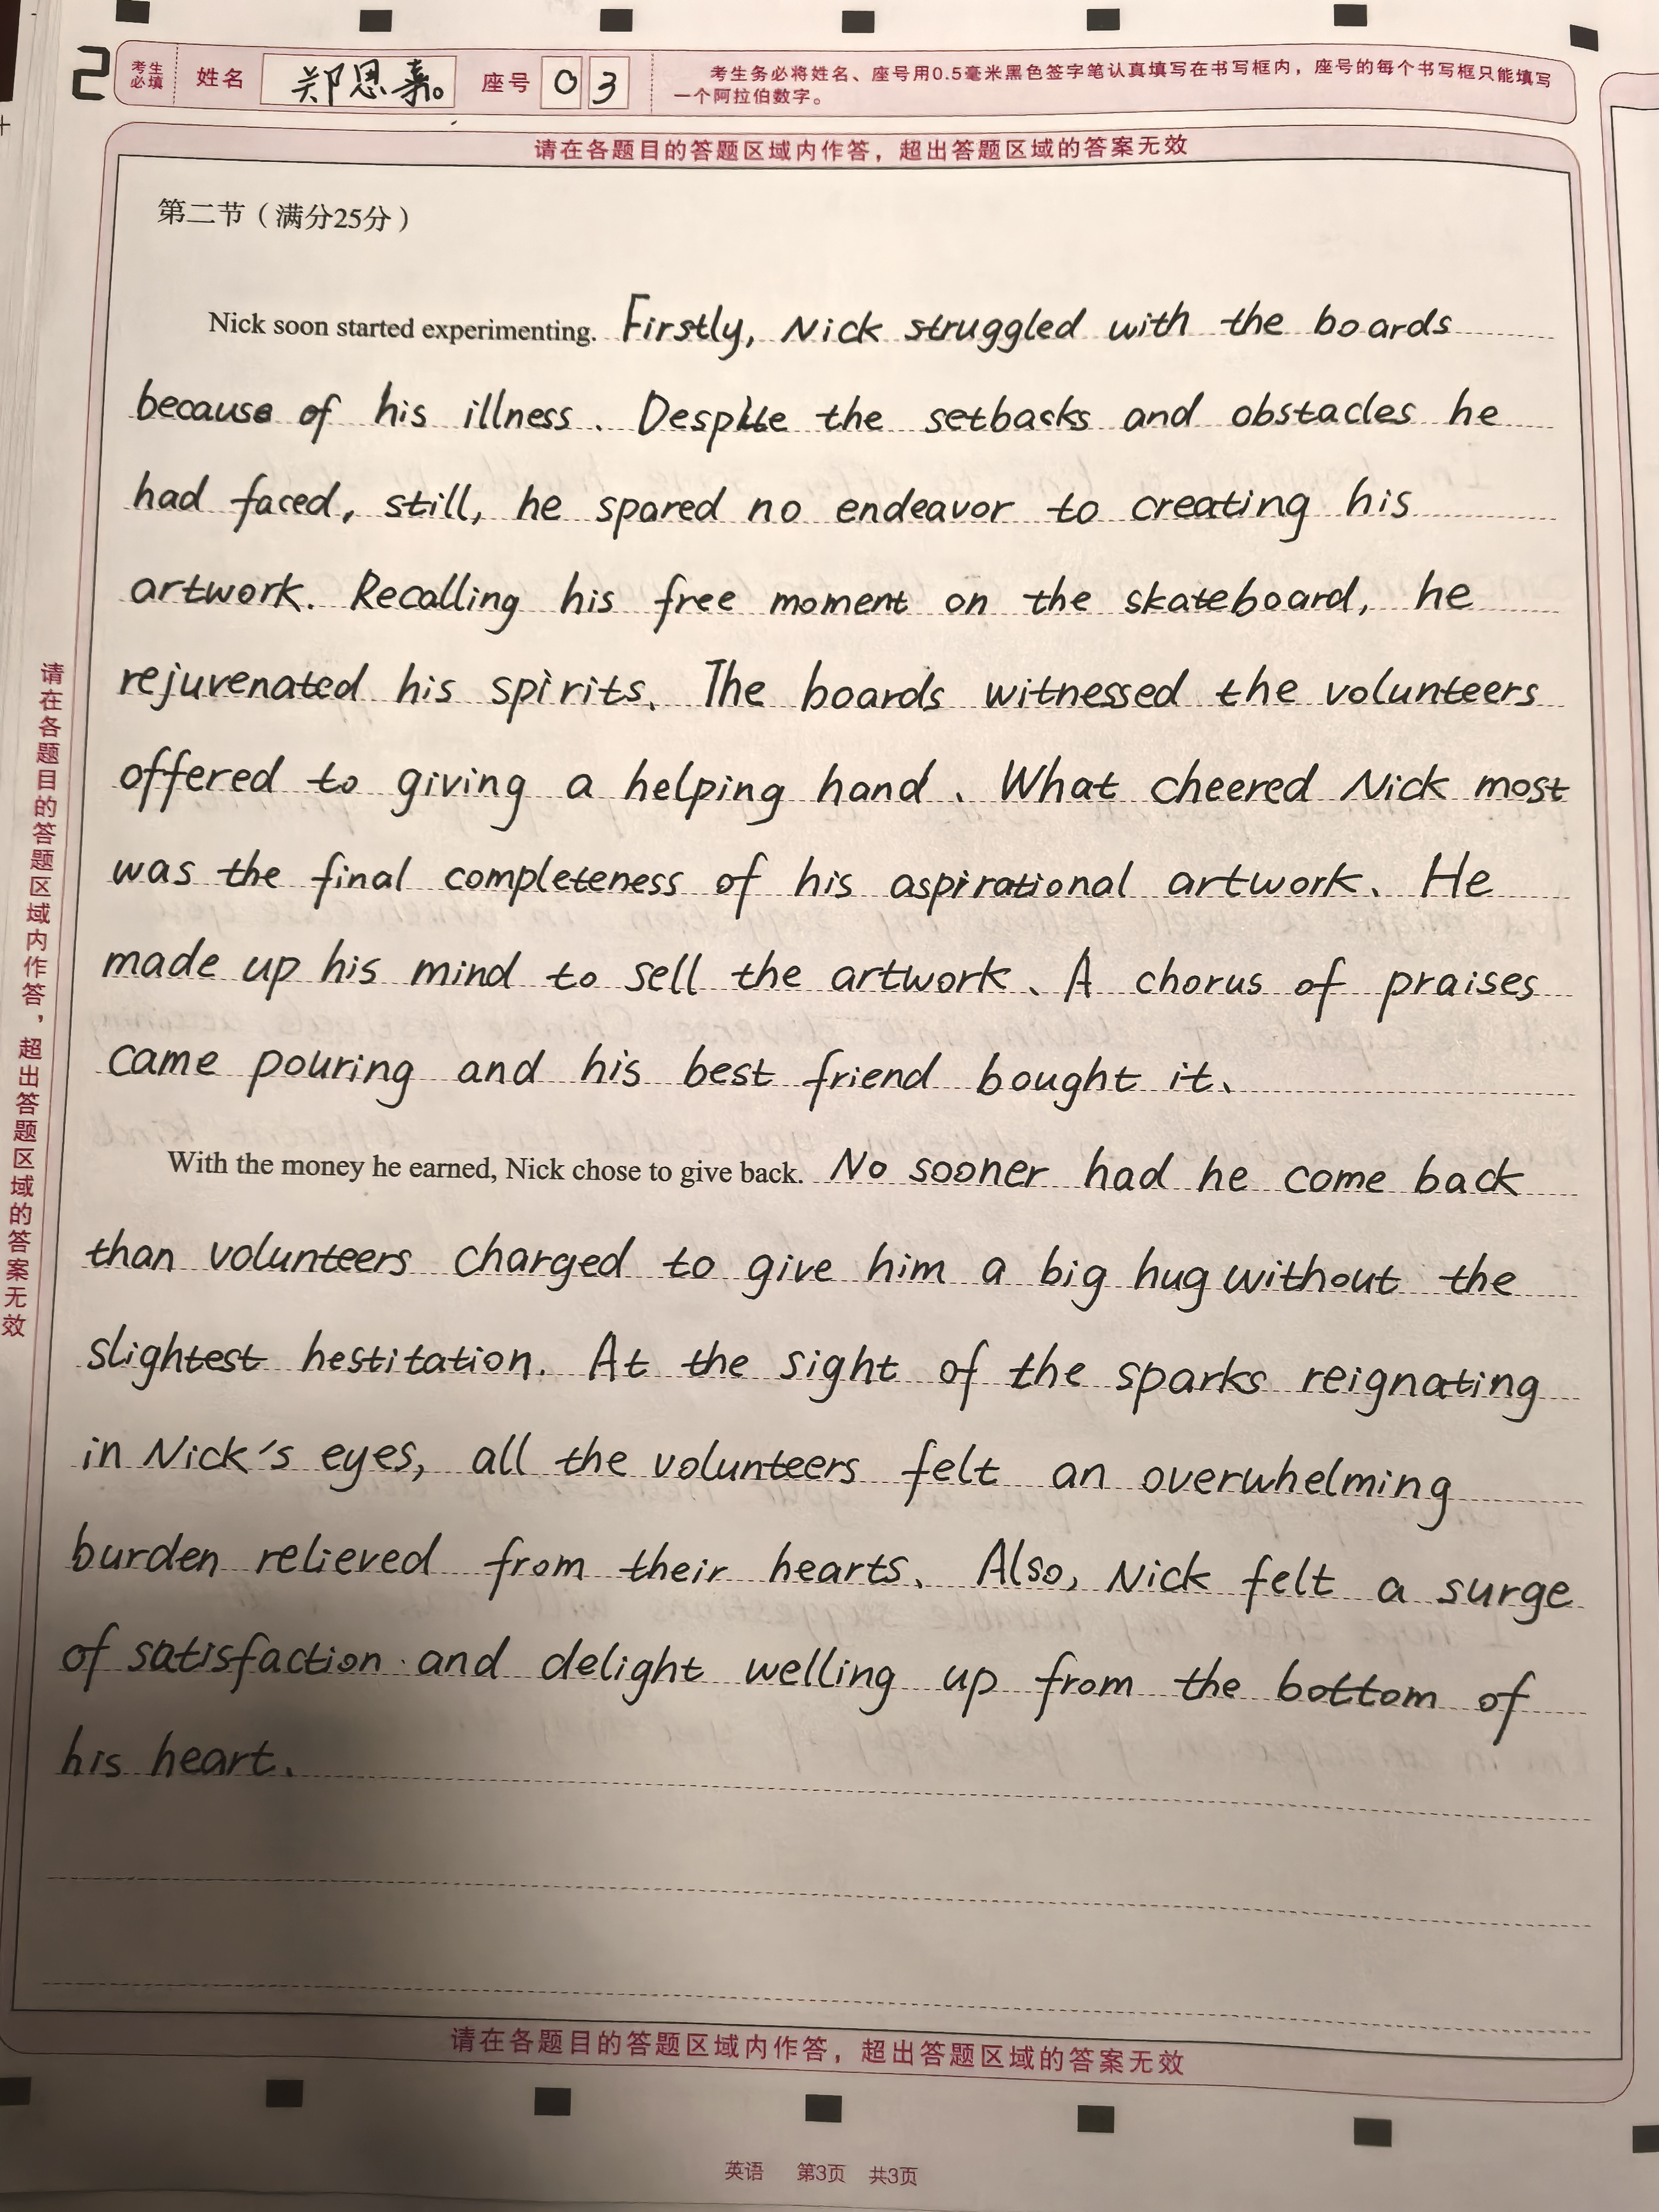 2 考生必填 姓名 郑恩嘉。 座号 0 3 考生务必将姓名、座号用0.5毫米黑色签字笔认真填写在书写框内，座号的每个书写框只能填写
一个阿拉伯数字。
请在各题目的答题区域内作答，超出答题区域的答案无效
第二节（满分25分）
Nick soon started experimenting. Firstly, Nick struggled with the boards
because of his illness. Despite the setbacks and obstacles he
had faced, still, he spared no endeavor to creating his
artwork. Recalling his free moment on the skateboard, he
rejuvenated his spirits. The boards witnessed the volunteers
offered to giving a helping hand. What cheered Nick most
was the final completeness of his aspirational artwork. He
made up his mind to sell the artwork. A chorus of praises
came pouring and his best friend bought it.
With the money he earned, Nick chose to give back. No sooner had he come back
than volunteers charged to give him a big hug without the
slightest hestitation. At the sight of the sparks reignating
in Nick's eyes, all the volunteers felt an overwhelming
burden relieved from their hearts. Also, Nick felt a surge
of satisfaction and delight welling up from the bottom of
his heart.
请在各题目的答题区域内作答，超出答题区域的答案无效
请在各题目的答题区域内作答，超出答题区域的答案无效
英语 第3页 共3页